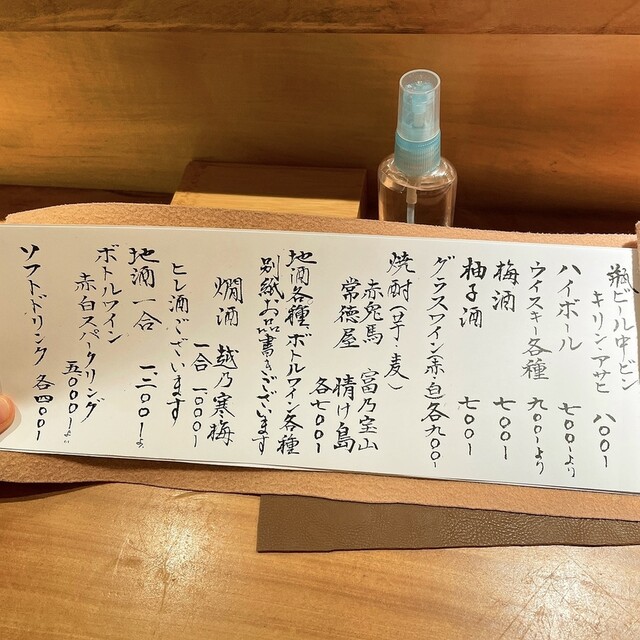 瓶ビール中ビン
キリン・アサヒ 八〇〇ー
ハイボール 七〇〇ーより
ウイスキー各種 九〇〇ーより
梅酒 七〇〇ー
柚子酒 七〇〇ー
グラスワイン(赤白)各九〇〇ー
焼酎(芋・麦)
赤兎馬 富乃宝山
常徳屋 情け島
各七〇〇ー
地酒各種、ボトルワイン各種
別紙お品書きございます
燗酒 越乃寒梅
一合 一、〇〇〇ー
ヒレ酒ございます
地酒一合 一、二〇〇ーより
ボトルワイン
赤白スパークリング
五〇〇〇ーより
ソフトドリンク 各四〇〇ー